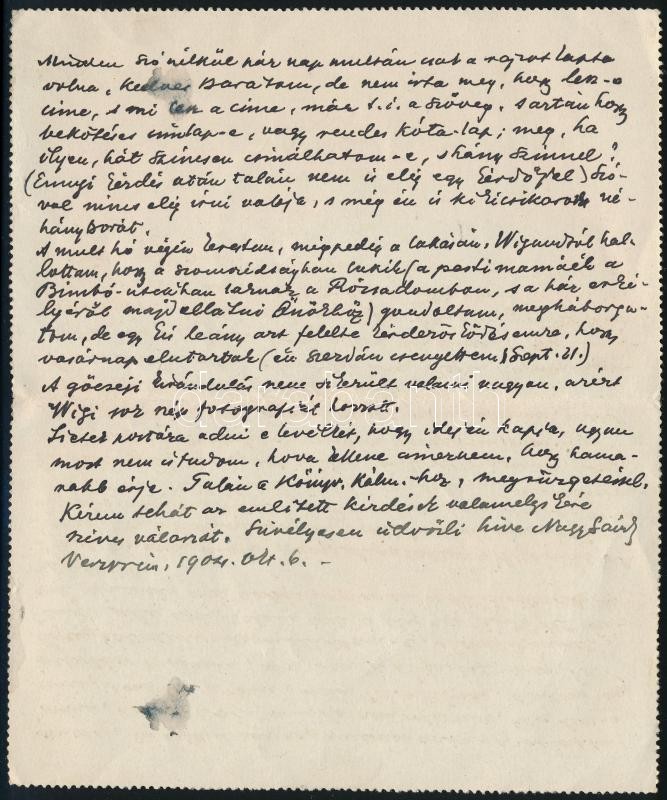 Minden szó nélkül pár nap multán csak a rajzot kapta
volna, Kedves Barátom, de nem irta meg, hogy lesz-e
cime, s mi lesz a cime, már t. i. a szöveg, s aztán hogy
bekötéses cimlap-e, vagy rendes kóta-lap; meg, ha
ilyen, hát szinesen csinálhatom-e, s hány szinnel?
(Ennyi kérdés után talán nem is elég egy kérdőjel) Szó-
val nincs elég irni valója, s még én is kicsikarok né-
hány sorát.
A mult hó végén kerestem, mégpedig a lakásán. Wigandtól hal-
lottam, hogy a szomszédságban lakik (a pesti mamáék a
Bimbó-utcában laknak a Rózsadombon, s a ház erké-
lyéről majd ellátni Önökhöz) gondoltam, megháborga-
tom, de egy kis leány azt felelte kérdezősködésemre, hogy
vasárnap elutaztak (én szerdán csengettem, Sept. 21.)
A göcseji kirándulás nem sikerült valami nagyon, azért
Wigi sok szép fotografiát hozott.
Sietek postára adni e levélkét, hogy idején kapja, ugyan
most nem is tudom, hova kellene címeznem, hogy hama-
rabb érje. Talán a Könyv. Kálm.-hoz, megsürgetéssel.
Kérem tehát az emlitett kérdések valamelyikére
szives válaszát. Szivélyesen üdvözli hive Nagy Sándor
Veszprém, 1904. okt. 6. -
darabanth